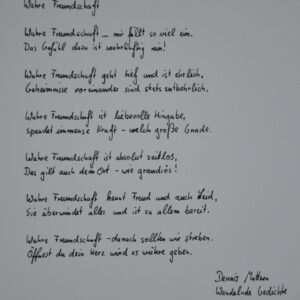 Wahre Freundschaft
Wahre Freundschaft ... mir fällt so viel ein.
Das Gefühl dazu ist wahrhaftig rein!
Wahre Freundschaft geht tief und ist ehrlich,
Geheimnisse voreinander sind stets entbehrlich.
Wahre Freundschaft ist liebevolle Hingabe,
spendet immense Kraft - welch große Gnade.
Wahre Freundschaft ist absolut zeitlos,
Das gilt auch dem Ort - wie grandios!
Wahre Freundschaft kennt Freud und auch Leid,
Sie überwindet alles und ist zu allem bereit.
Wahre Freundschaft - danach sollten wir streben.
Öffnest du dein Herz wird es weitere geben.
Dennis
Wandelnde Gedichte